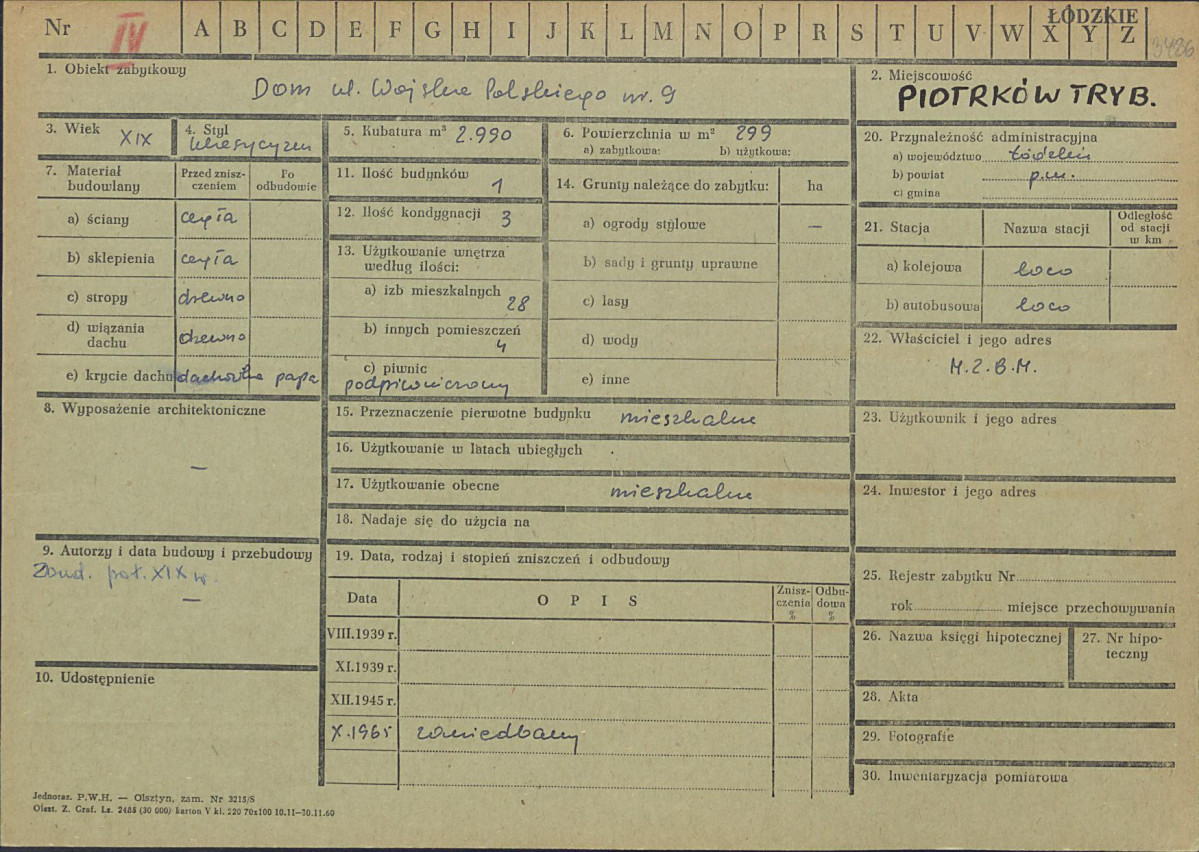 Nr IV A B C D E F G H I J K L M N O P R S T U V W X Y Z
ŁÓDZKIE
3426
1. Obiekt zabytkowy
Dom ul. Wojska Polskiego nr. 9
2. Miejscowość
PIOTRKÓW TRYB.
3. Wiek XIX
4. Styl klasycyzm
5. Kubatura m³ 2.990
6. Powierzchnia w m² 299
a) zabytkowa: b) użytkowa:
7. Materiał budowlany
Przed zniszczeniem
Po odbudowie
a) ściany cegła
b) sklepienia cegła
c) stropy drewno
d) wiązania dachu drewno
e) krycie dachu dachówka papa
8. Wyposażenie architektoniczne
—
9. Autorzy i data budowy i przebudowy
poł. XIX w.
—
10. Udostępnienie
11. Ilość budynków 1
12. Ilość kondygnacji 3
13. Użytkowanie wnętrza według ilości:
a) izb mieszkalnych 28
b) innych pomieszczeń 4
c) piwnic
podpiwniczony
14. Grunty należące do zabytku: ha
a) ogrody stylowe —
b) sady i grunty uprawne
c) lasy
d) wody
e) inne
15. Przeznaczenie pierwotne budynku mieszkalne
16. Użytkowanie w latach ubiegłych
17. Użytkowanie obecne mieszkalne
18. Nadaje się do użycia na
19. Data, rodzaj i stopień zniszczeń i odbudowy
Data
OPIS
Zniszczenia %
Odbudowa %
VIII.1939 r.
XI.1939 r.
XII.1945 r.
X.1965 zaniedbany
20. Przynależność administracyjna
a) województwo łódzkie
b) powiat p.m.
c) gmina
21. Stacja
Nazwa stacji
Odległość od stacji w km
a) kolejowa loco
b) autobusowa loco
22. Właściciel i jego adres
M.Z.B.M.
23. Użytkownik i jego adres
24. Inwestor i jego adres
25. Rejestr zabytku Nr
rok miejsce przechowywania
26. Nazwa księgi hipotecznej
27. Nr hipoteczny
28. Akta
29. Fotografie
30. Inwentaryzacja pomiarowa
Jednoraz. P.W.H. — Olsztyn, zam. Nr 3215/S
Olszt. Z. Graf. Lz. 2485 (30 000) karton V kl. 220 70x100 10.11—30.11.60